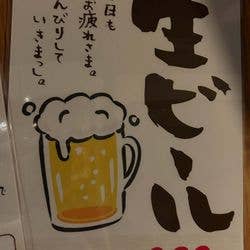 生ビール
日も
お疲れさま。
んびりして
いきまっし。